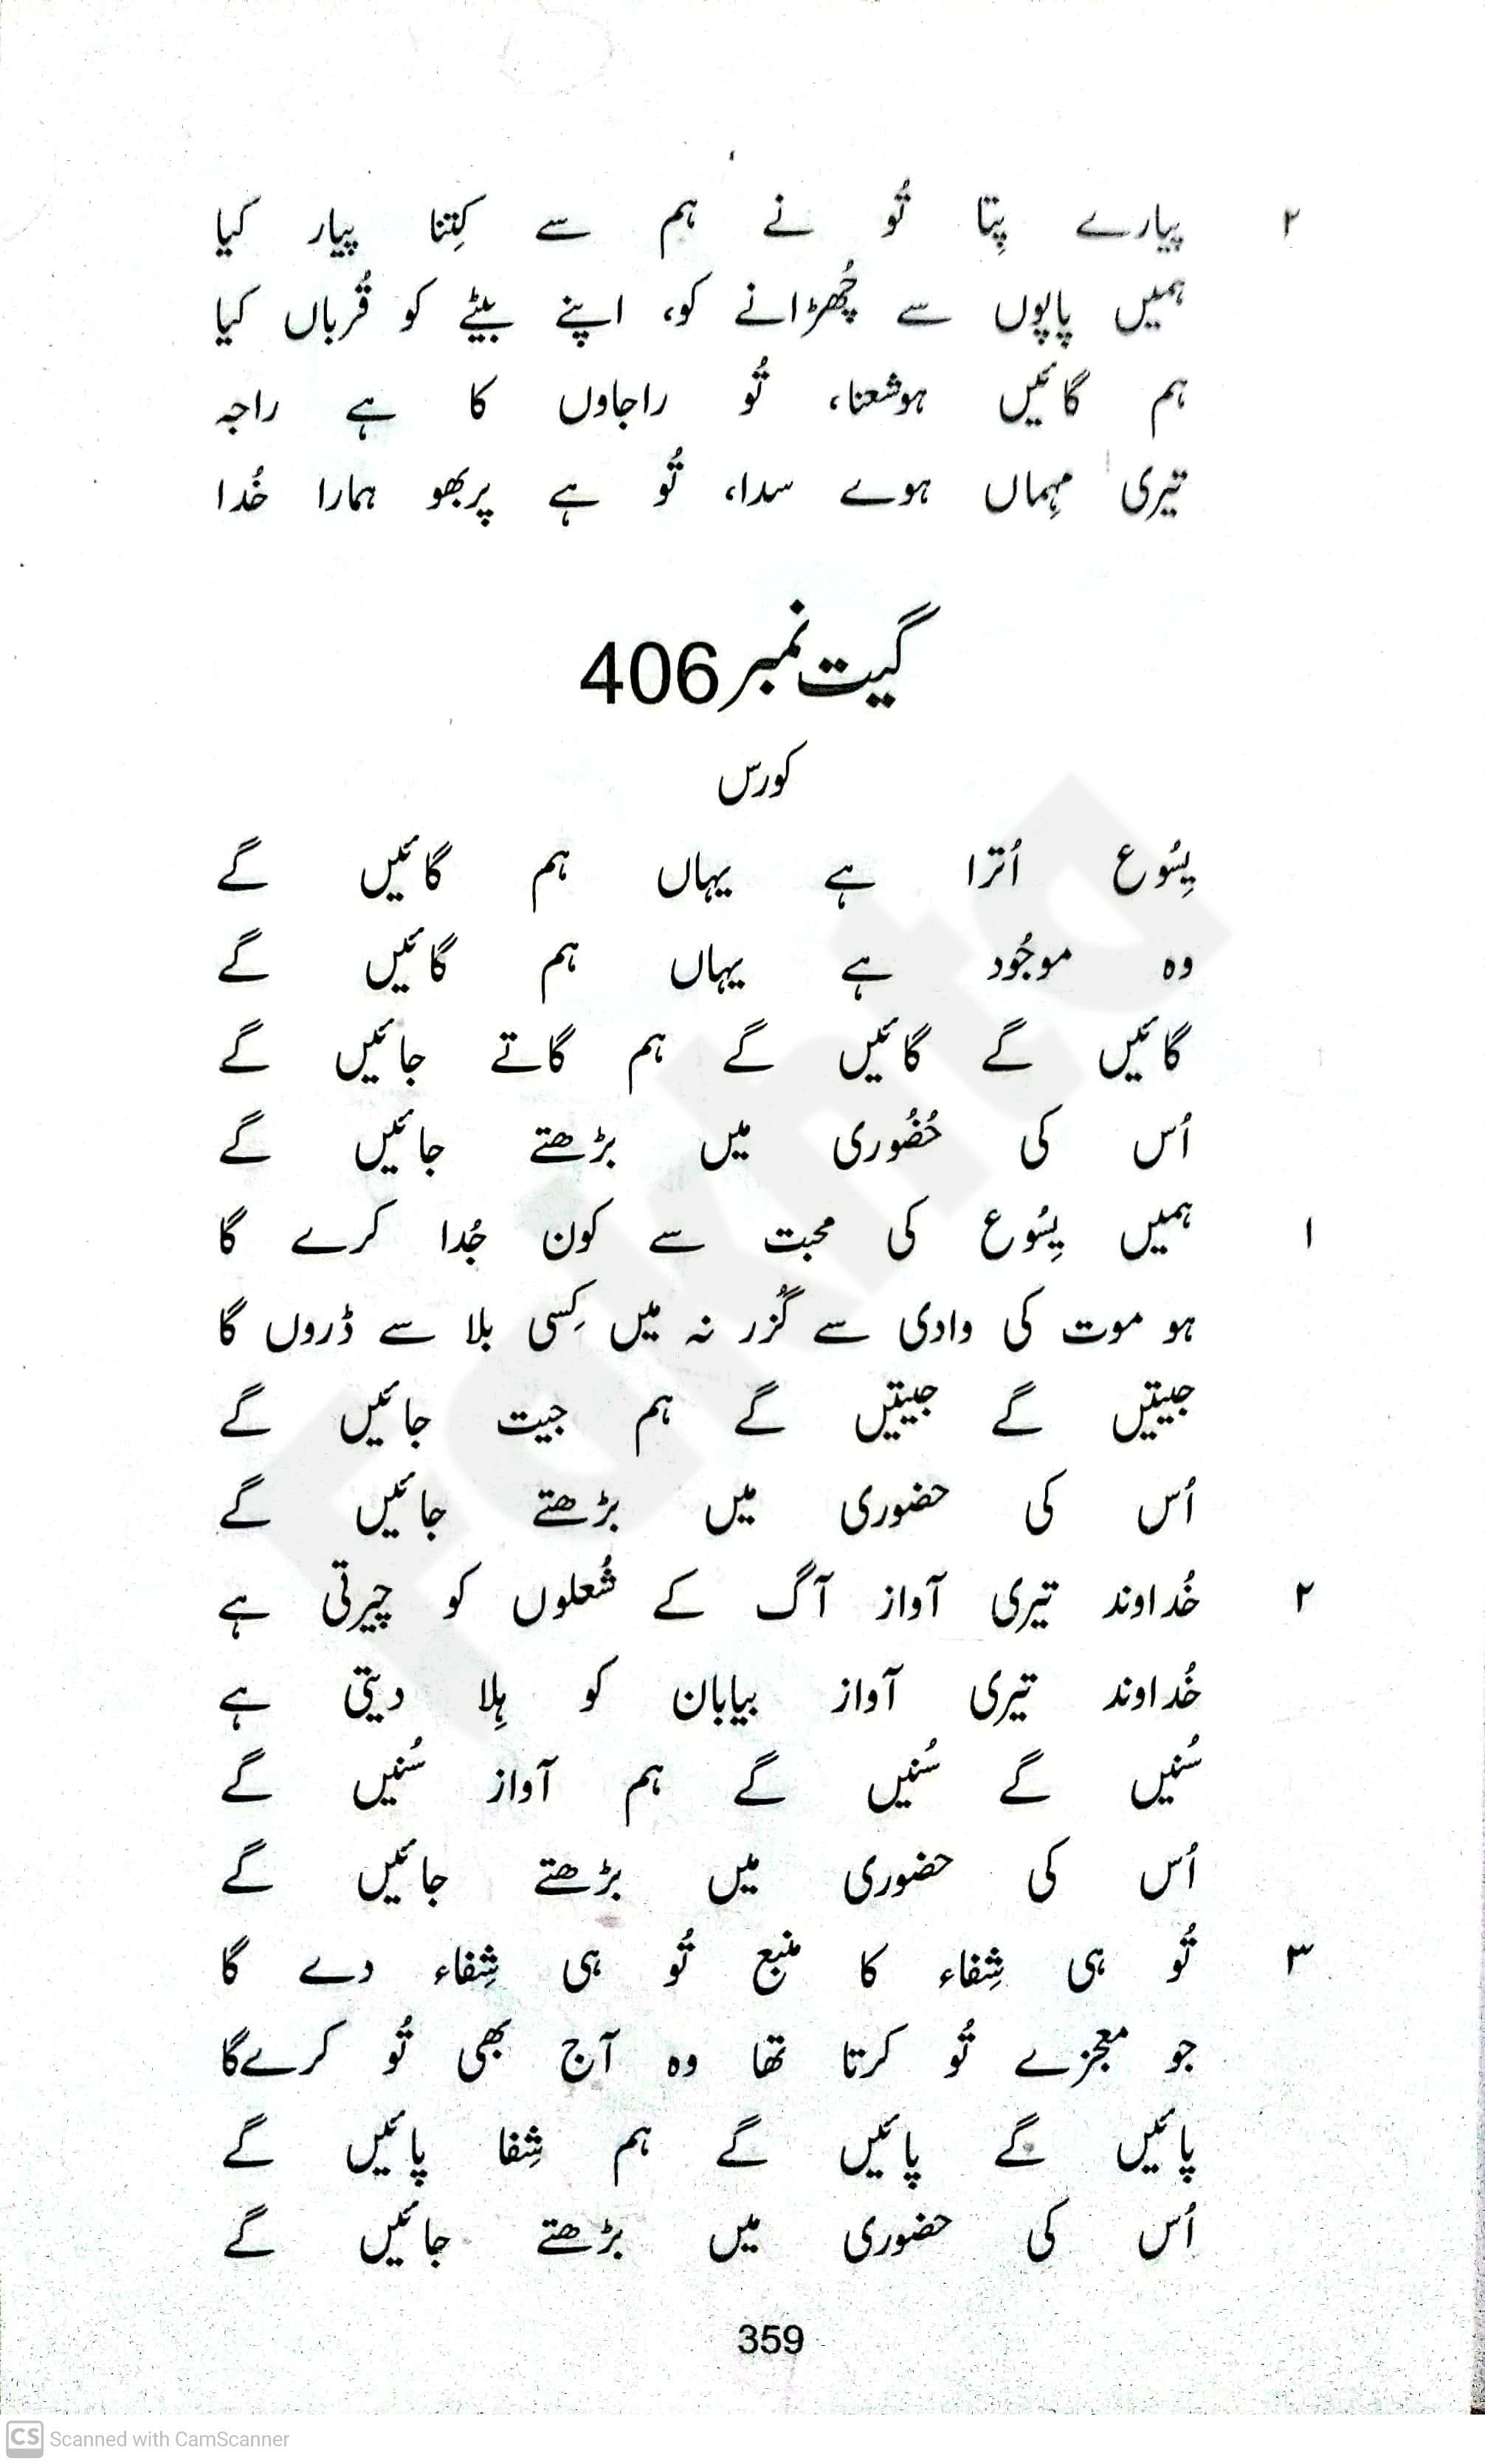 ۲ پیارے پِتا تُو نے ہم سے کِتنا پیار کیا
ہمیں پاپوں سے چُھڑانے کو، اپنے بیٹے کو قُرباں کیا
ہم گائیں ہوشعنا، تُو راجاوں کا ہے راجہ
تیری مہِماں ہوے سدا، تُو ہے پربھو ہمارا خُدا
گیت نمبر 406
کورس
یِسُوع اُترا ہے یہاں ہم گائیں گے
وہ موجُود ہے یہاں ہم گائیں گے
گائیں گے گائیں گے ہم گاتے جائیں گے
اُس کی حُضُوری میں بڑھتے جائیں گے
۱ ہمیں یِسُوع کی محبت سے کون جُدا کرے گا
ہو موت کی وادی سے گُزر نہ میں کِسی بلا سے ڈروں گا
جیتیں گے جیتیں گے ہم جیت جائیں گے
اُس کی حضوری میں بڑھتے جائیں گے
۲ خُداوند تیری آواز آگ کے شُعلوں کو چیرتی ہے
خُداوند تیری آواز بیابان کو ہِلا دیتی ہے
سُنیں گے سُنیں گے ہم آواز سُنیں گے
اُس کی حضوری میں بڑھتے جائیں گے
۳ تُو ہی شِفاء کا منبع تُو ہی شِفاء دے گا
جو معجزے تُو کرتا تھا وہ آج بھی تُو کرےگا
پائیں گے پائیں گے ہم شِفا پائیں گے
اُس کی حضوری میں بڑھتے جائیں گے
359
CS Scanned with CamScanner
Fakhta